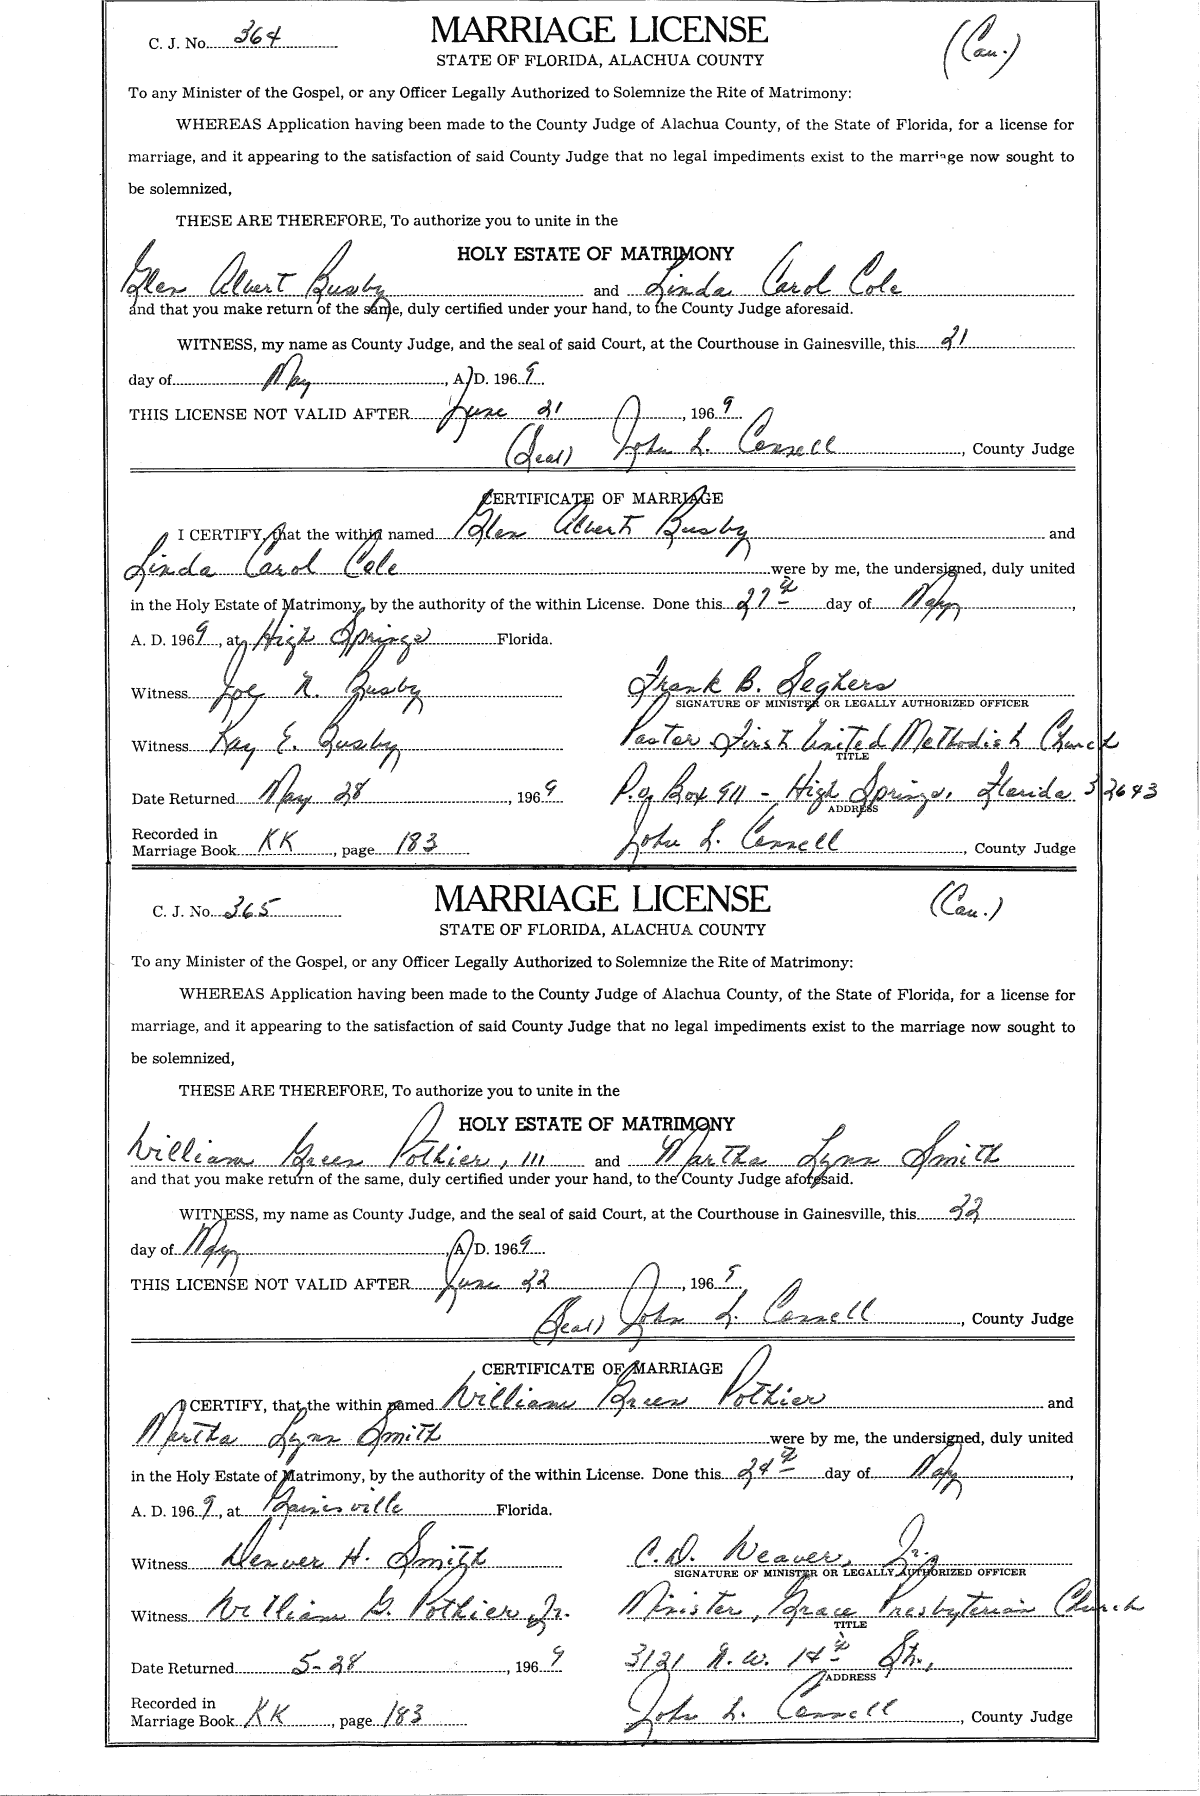 C. J. No. 364
MARRIAGE LICENSE
(Cau.)
STATE OF FLORIDA, ALACHUA COUNTY
To any Minister of the Gospel, or any Officer Legally Authorized to Solemnize the Rite of Matrimony:
WHEREAS Application having been made to the County Judge of Alachua County, of the State of Florida, for a license for
marriage, and it appearing to the satisfaction of said County Judge that no legal impediments exist to the marriage now sought to
be solemnized,
THESE ARE THEREFORE, To authorize you to unite in the
HOLY ESTATE OF MATRIMONY
Glen Albert Busby and Linda Carol Cole
and that you make return of the same, duly certified under your hand, to the County Judge aforesaid.
WITNESS, my name as County Judge, and the seal of said Court, at the Courthouse in Gainesville, this 21
day of May, A. D. 1969
THIS LICENSE NOT VALID AFTER June 21, 1969
(Seal) John L. Connell, County Judge
CERTIFICATE OF MARRIAGE
I CERTIFY, that the within named Glen Albert Busby and
Linda Carol Cole were by me, the undersigned, duly united
in the Holy Estate of Matrimony, by the authority of the within License. Done this 27th day of May,
A. D. 1969, at High Springs Florida.
Witness Joe N. Busby Frank B. Seghers
SIGNATURE OF MINISTER OR LEGALLY AUTHORIZED OFFICER
Witness Kay E. Busby Pastor First United Methodist Church
TITLE
Date Returned May 28, 1969 P.O. Box 911 - High Springs, Florida 32643
ADDRESS
Recorded in
Marriage Book KK, page 183 John L. Connell, County Judge
C. J. No. 365
MARRIAGE LICENSE
(Cau.)
STATE OF FLORIDA, ALACHUA COUNTY
To any Minister of the Gospel, or any Officer Legally Authorized to Solemnize the Rite of Matrimony:
WHEREAS Application having been made to the County Judge of Alachua County, of the State of Florida, for a license for
marriage, and it appearing to the satisfaction of said County Judge that no legal impediments exist to the marriage now sought to
be solemnized,
THESE ARE THEREFORE, To authorize you to unite in the
HOLY ESTATE OF MATRIMONY
William Green Pothier, III and Martha Lynn Smith
and that you make return of the same, duly certified under your hand, to the County Judge aforesaid.
WITNESS, my name as County Judge, and the seal of said Court, at the Courthouse in Gainesville, this 22
day of May, A. D. 1969
THIS LICENSE NOT VALID AFTER June 22, 1969
(Seal) John L. Connell, County Judge
CERTIFICATE OF MARRIAGE
I CERTIFY, that the within named William Green Pothier and
Martha Lynn Smith were by me, the undersigned, duly united
in the Holy Estate of Matrimony, by the authority of the within License. Done this 24th day of May,
A. D. 1969, at Gainesville Florida.
Witness Denver H. Smith C. D. Weaver, Jr.
SIGNATURE OF MINISTER OR LEGALLY AUTHORIZED OFFICER
Witness William G. Pothier, Jr. Minister, Grace Presbyterian Church
TITLE
Date Returned 5-28, 1969 3121 N.W. 14th St.,
ADDRESS
Recorded in
Marriage Book KK, page 183 John L. Connell, County Judge